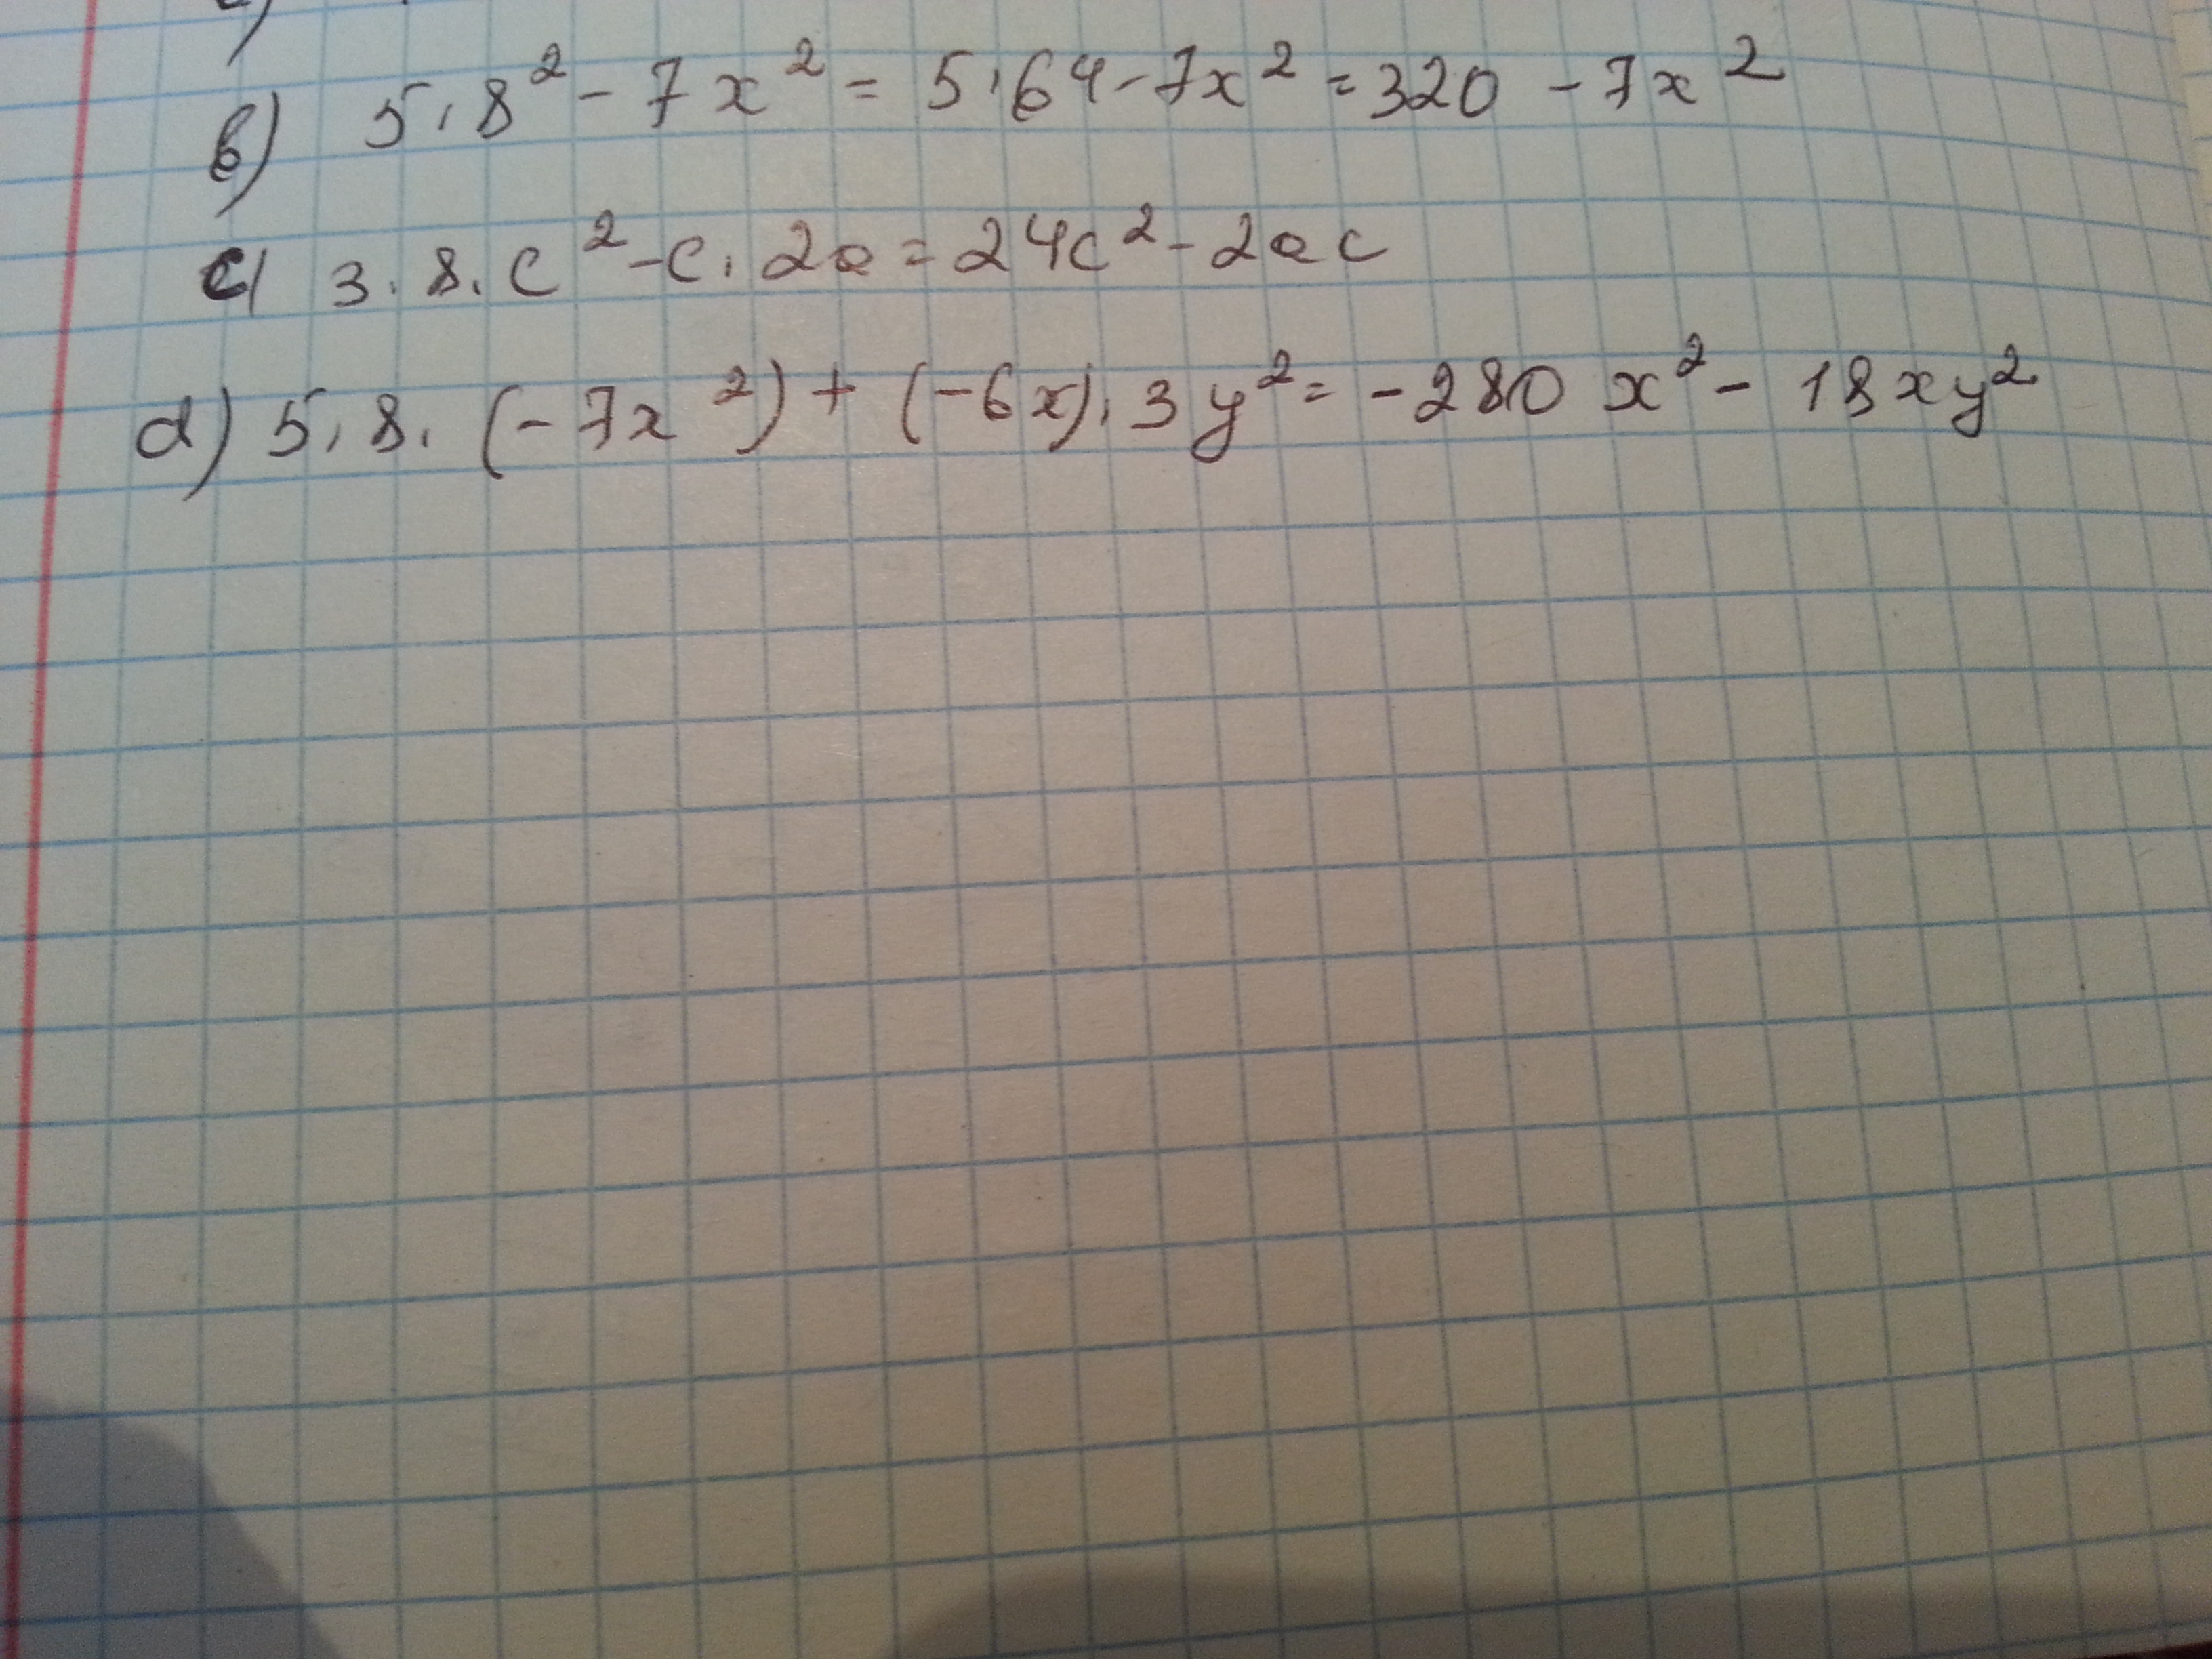 b) 5·8² - 7x² = 5·64 - 7x² = 320 - 7x²
c) 3·8·c² - c·2a = 24c² - 2ac
d) 5·8·(-7x²) + (-6x)·3y² = -280x² - 18xy²